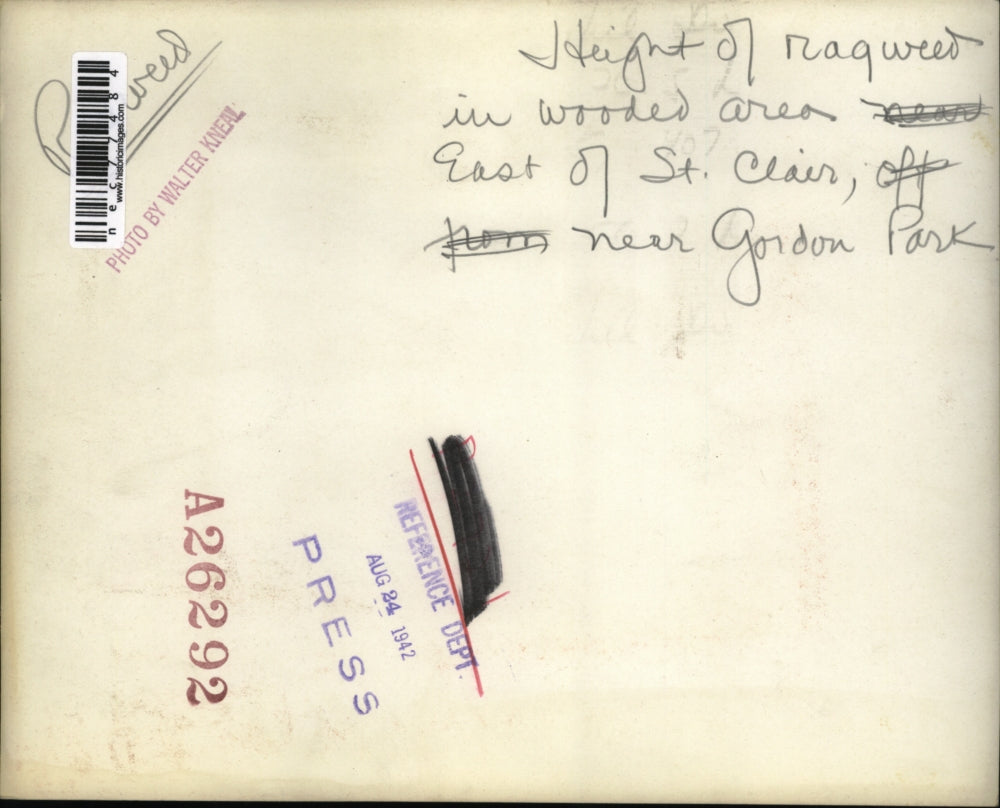 Height of ragweed
in wooded area near
East of St. Clair, off
from near Gordon Park
weed
nec77484
www.historicimages.com
PHOTO BY WALTER KNEAL
A26292
PRESS
AUG 24 1942
REFERENCE DEPT.